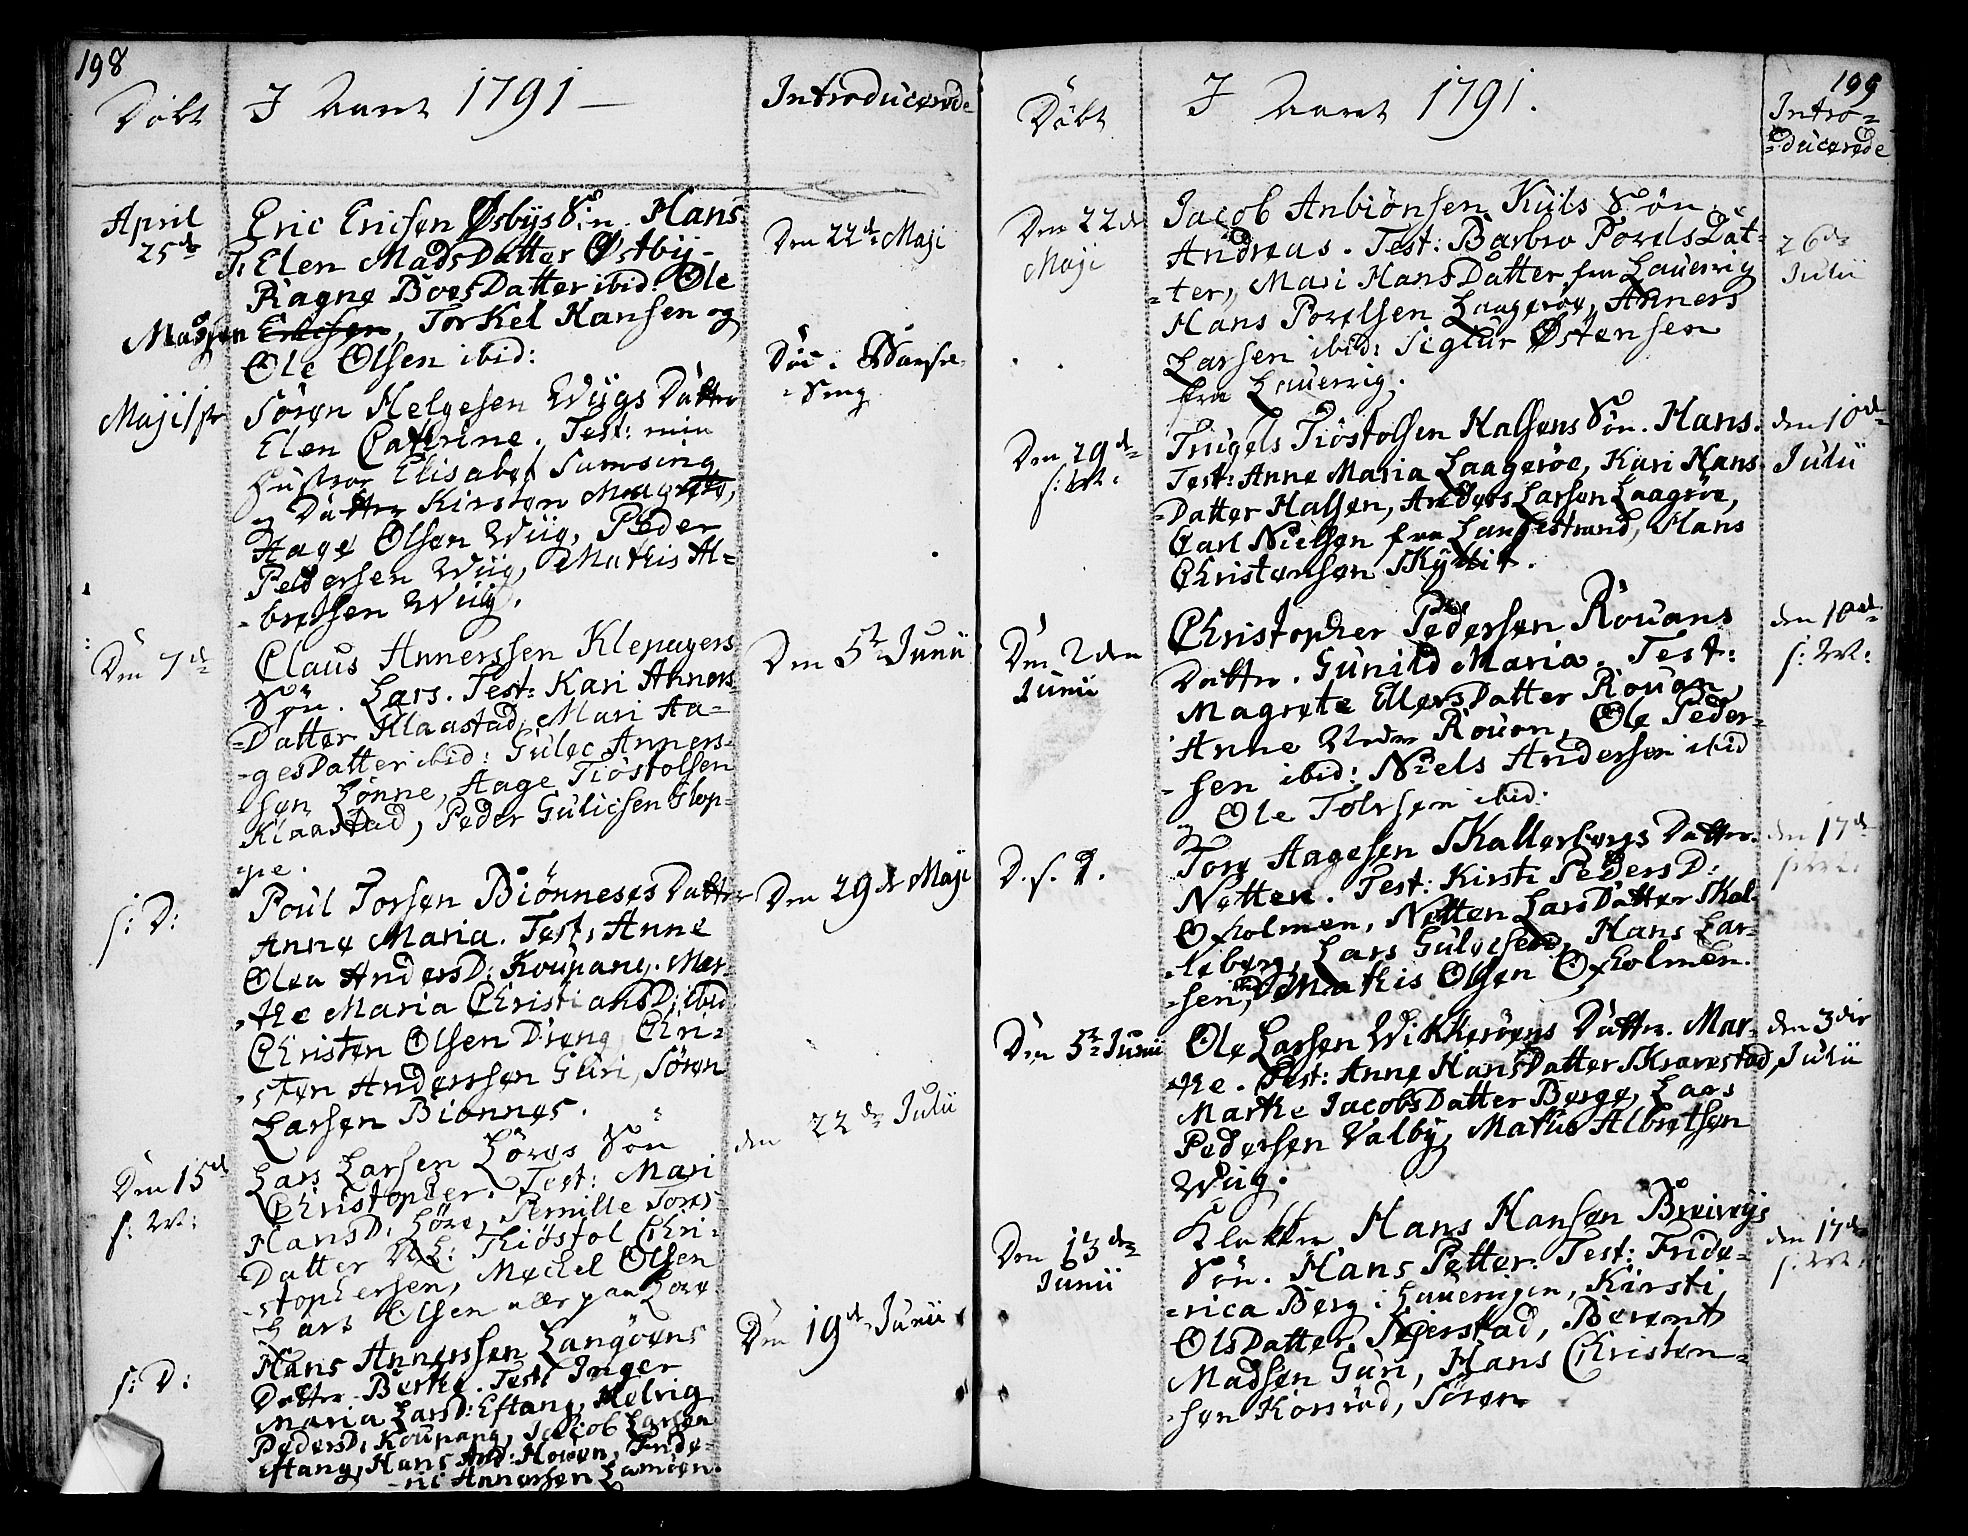 198
Döbt
I Aaret 1791 —
Introducerede
April
25de
Eric Ericsen Østbys Sön. Hans
T: Elen MadsDatter Østby
Ragne BoesDatter ibid: Ole
Madssen Ericsen, Torkel Hansen og
Ole Olsen ibid:
Den 22de Maji
Maji 1ste
Sören Helgesen Wiigs Datter
Elen Cathrine. Test: min
Hustroe Elisabet Sumsing
og Datter Kirsten Magrete,
Aage Olsen Wiig, Peder
Pedersen Wiig, Mathis Al-
-bretsen Wiig.
Den 7de
Claus Annerssen Klepagers
Sön. Lars. Test: Kari Anners-
-Datter Klaastad, Mari Aa-
-gesDatter ibid: Gulec Anners-
-sen Lönne, Aage Tiöstolsen
Klaastad, Peder Gulicsen Glop-
-pe.
Den 5te Junii
s: D:
Poul Torsen Biönneses Datter
Anne Maria. Test: Anne
Olea AndersD: Koupang. Mar-
-the Maria ChristiansD: ibid
Christen Olsen Dreng, Chri-
-sten Anderssen Guri, Sören
Larsen Bionnes.
Den 29de Maji
Den 15de
s: M:
Lars Larsen Höres Sön
Christopher. Test: Mari
HansD: Höre, Pernille Tores-
Datter Thiöstol Chri-
-stophersen, Mechel Olsen
Lars Olsen
den 22de Julii
s: D:
Hans Annerssen Langöens
Datter Berthe. Test: Inger
Maria LarsD: Eftang, Helvig
PedersD: Koupang, Jacob Larsen
Eftang, Hans And: Houen, Fride-
-ric Annersen
Den 19de Junii
199
Döbt
I Aaret 1791.
Intro-
-ducerede
Den 22de
Maji
Jacob Anbiönsen Kiils Sön
Andreas. Test: Barbro PovelsDat-
-ter, Mari HansDatter fra Lauervig
Hans Povelsen Laageröe, Anners
Larsen ibid: Sigiur Østensen
fra Lauervig.
26de
Julii
Den 29de
s: M:
Trugels Tiöstolsen Halsens Sön. Hans.
Test: Anne Maria Laageröe, Kari Hans-
-Datter Halsen, Anders Larsen Laagröe,
Carl Nielsen fra Langestrand, Hans
Christensen
den 10de
Julii
Den 2den
Junii
Christopher Pedersen Rouans
Datter. Gunild Maria. Test:
Magrete EllersDatter Rouan,
Anne Rouan, Ole Peder-
-sen ibid: Niels Andersen ibid
og Ole Tolvsen ibid:
den 10de
s: M:
D. s. D.
Tore Aagesen Skallebergs Datter.
Netten. Test: Kirsti PedersD:
Oxholmen, Netten LarsDatter Skal-
-leberg, Lars Gulvesen, Hans Lar-
-sen, Mathis Olsen Oxholmen.
den 17de
Den 5te Junii
Ole Larsen Wikkeröens Datter. Mar-
-the. Test: Anne HansDatter Skravestad,
Marthe JacobsDatter Berge, Lars
Pedersen Valby, Mathis Albretsen
Wiig.
den 3die
Julii
Den 13de
Junii
Klokker Hans Hansen
Sön. Hans Petter. Test: Fride-
-rica Berg i Lauervigen, Kirsti
OlsDatter Sejerstad, Berent
Madsen Guri, Hans Christen-
-sen Korsröd, Sören
den 17de
s: M: